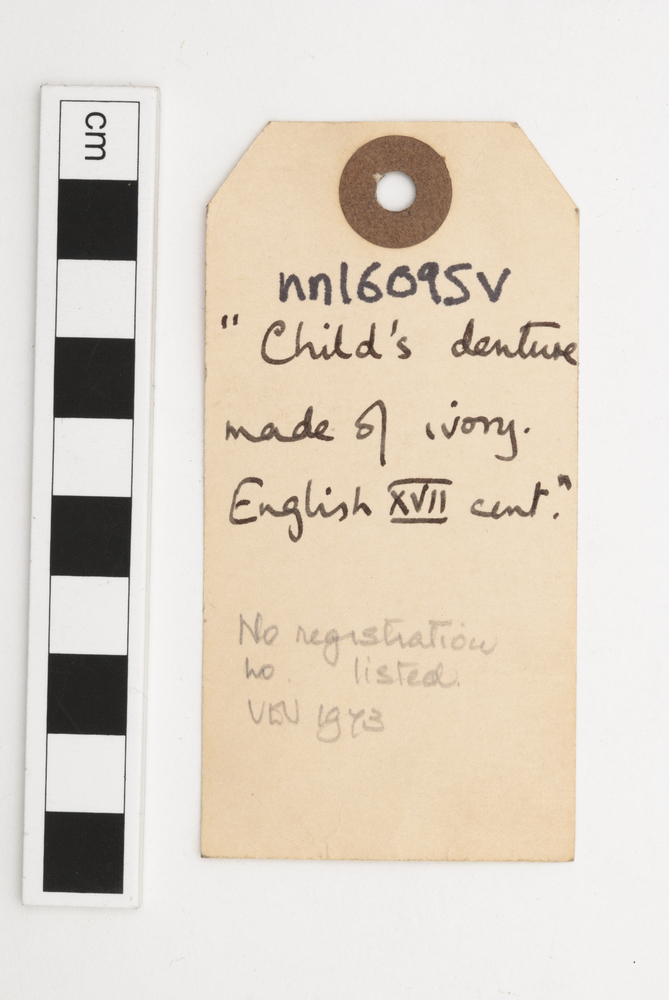 cm
nn16095V
" Child's denture
made of ivory.
English XVII cent."
No registration
no. listed.
1973